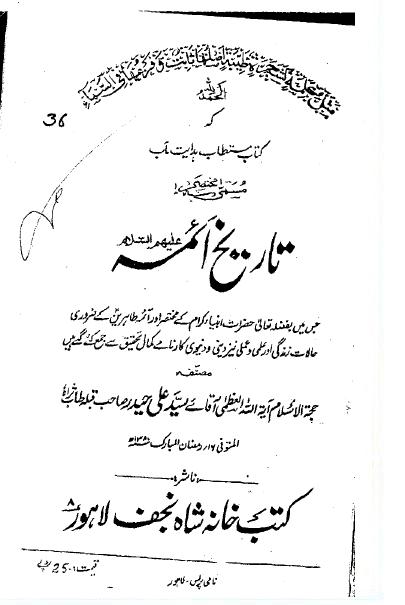 مثل كلمة طيبة كشجرة طيبة اصلها ثابت وفرعها فى السماء
الحمد للہ
36
کہ
کتاب مستطاب ہدایت مآب
مسمّٰی بہ
تاریخ آئمہ علیہم السلام
جس میں بفضلہ تعالیٰ حضرات انبیاء کرام کے مختصر اور آئمہ طاہرین کے ضروری
حالات زندگی اور علمی و عملی نیز دینی و دنیوی کارنامے کمال تحقیق سے جمع کئے گئے ہیں
مصنفہ
حجۃ الاسلام آیۃ اللہ العظمیٰ آقائے سید علی حیدر صاحب قبلہ طاب ثراہ
المتوفی ۱۶ رمضان المبارک ۱۳۸۰ھ
ناشر
کتب خانہ شاہ نجف لاہور ۸
قیمت :- 25 روپے
نامی پریس - لاہور